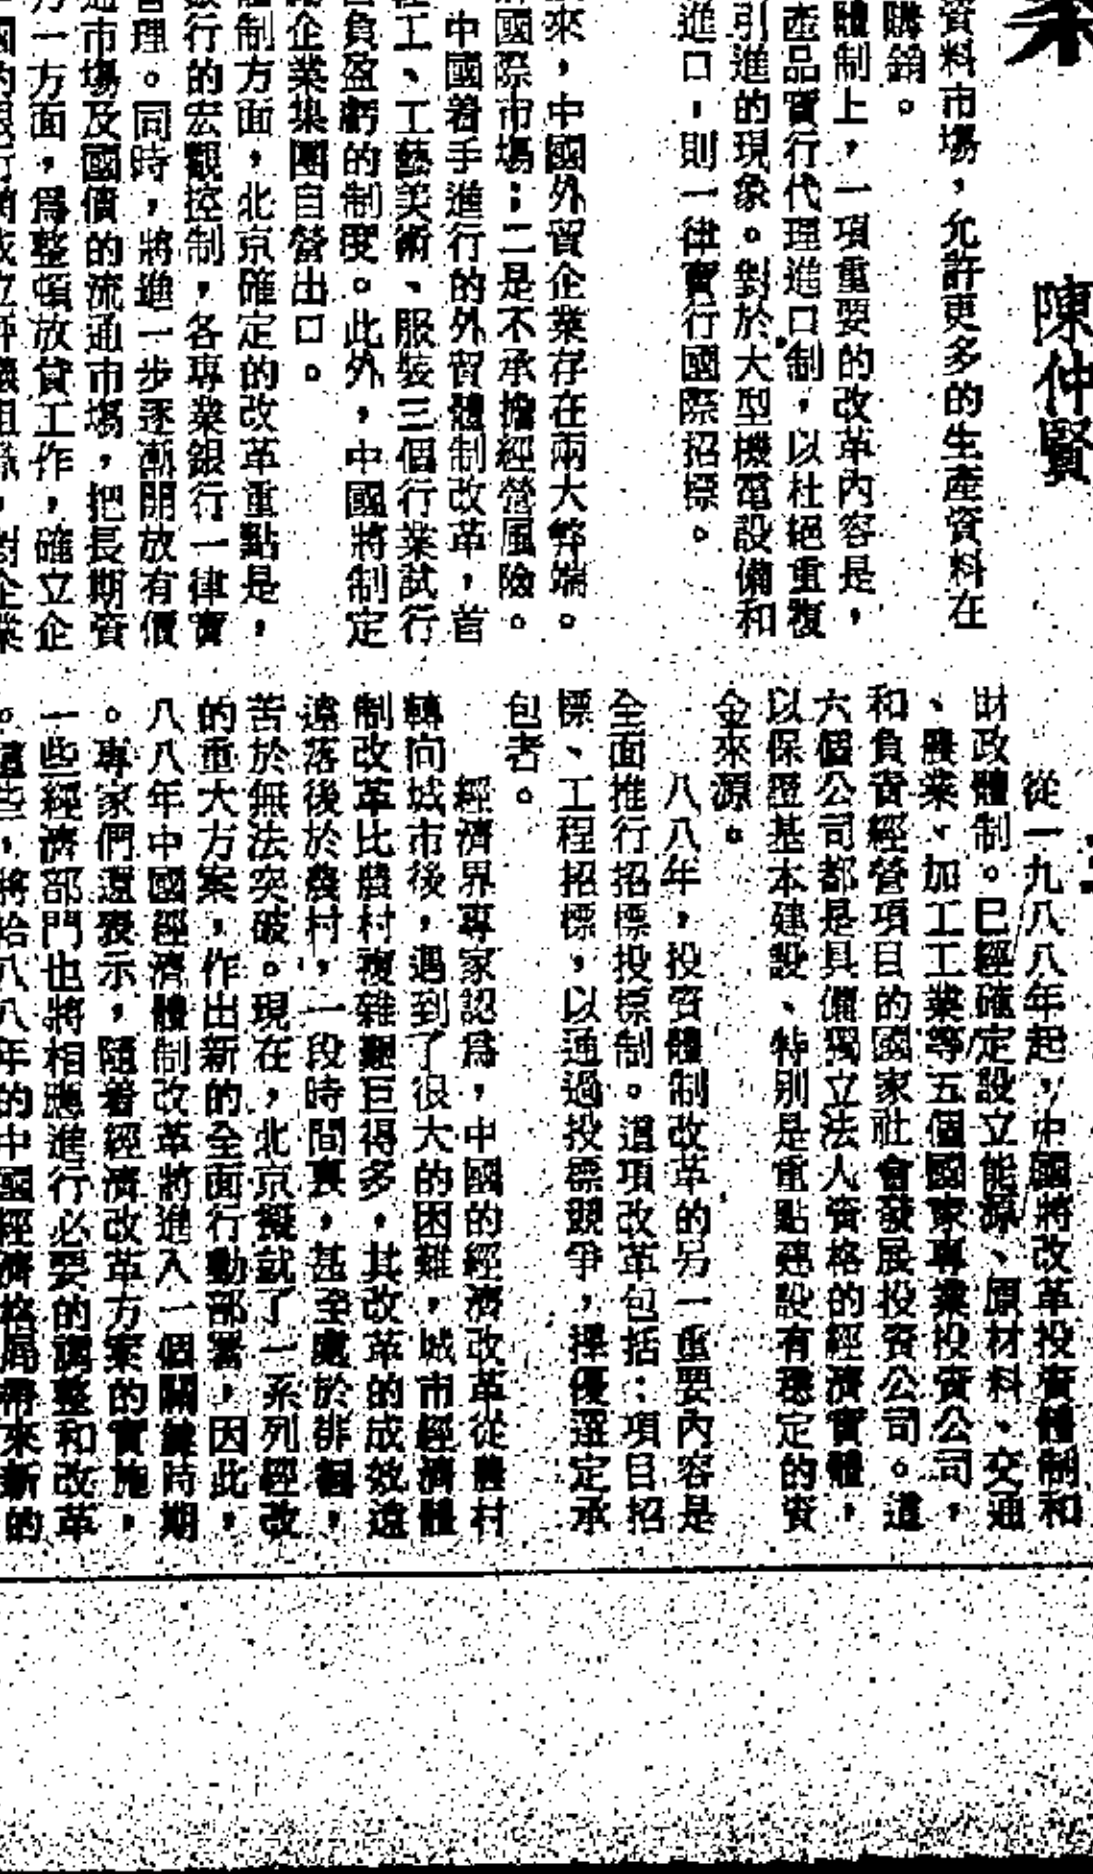 陳仲賢
資料市場，允許更多的生產資料在
購銷。
體制上，一項重要的改革內容是，
產品實行代理進口制，以杜絕重複
引進的現象。對於大型機電設備和
進口，則一律實行國際招標。
來，中國外貿企業存在兩大弊端。
國際市場；二是不承擔經營風險。
中國着手進行的外貿體制改革，首
工、工藝美術、服裝三個行業試行
負盈虧的制度。此外，中國將制定
企業集團自營出口。
制方面，北京確定的改革重點是，
行的宏觀控制，各專業銀行一律實
管理。同時，將進一步逐漸開放有價
通市場及國債的流通市場，把長期資
一方面，爲整頓放貸工作，確立企
從一九八八年起，中國將改革投資體制和
財政體制。已經確定設立能源、原材料、交通
、農業、加工工業等五個國家專業投資公司，
和負責經營項目的國家社會發展投資公司。這
六個公司都是具備獨立法人資格的經濟實體，
以保證基本建設、特別是重點建設有穩定的資
金來源。
八八年，投資體制改革的另一重要內容是
全面推行招標投標制。這項改革包括：項目招
標、工程招標，以通過投標競爭，擇優選定承
包者。
經濟界專家認爲，中國的經濟改革從農村
轉向城市後，遇到了很大的困難，城市經濟體
制改革比農村複雜艱巨得多，其改革的成效遠
遠落後於農村，一段時間裏，甚至處於徘徊，
苦於無法突破。現在，北京擬就了一系列經改
的重大方案，作出新的全面行動部署，因此，
八八年中國經濟體制改革將進入一個關鍵時期
。專家們還表示，隨着經濟改革方案的實施，
一些經濟部門也將相應進行必要的調整和改革
。這些，將給八八年的中國經濟格局帶來新的